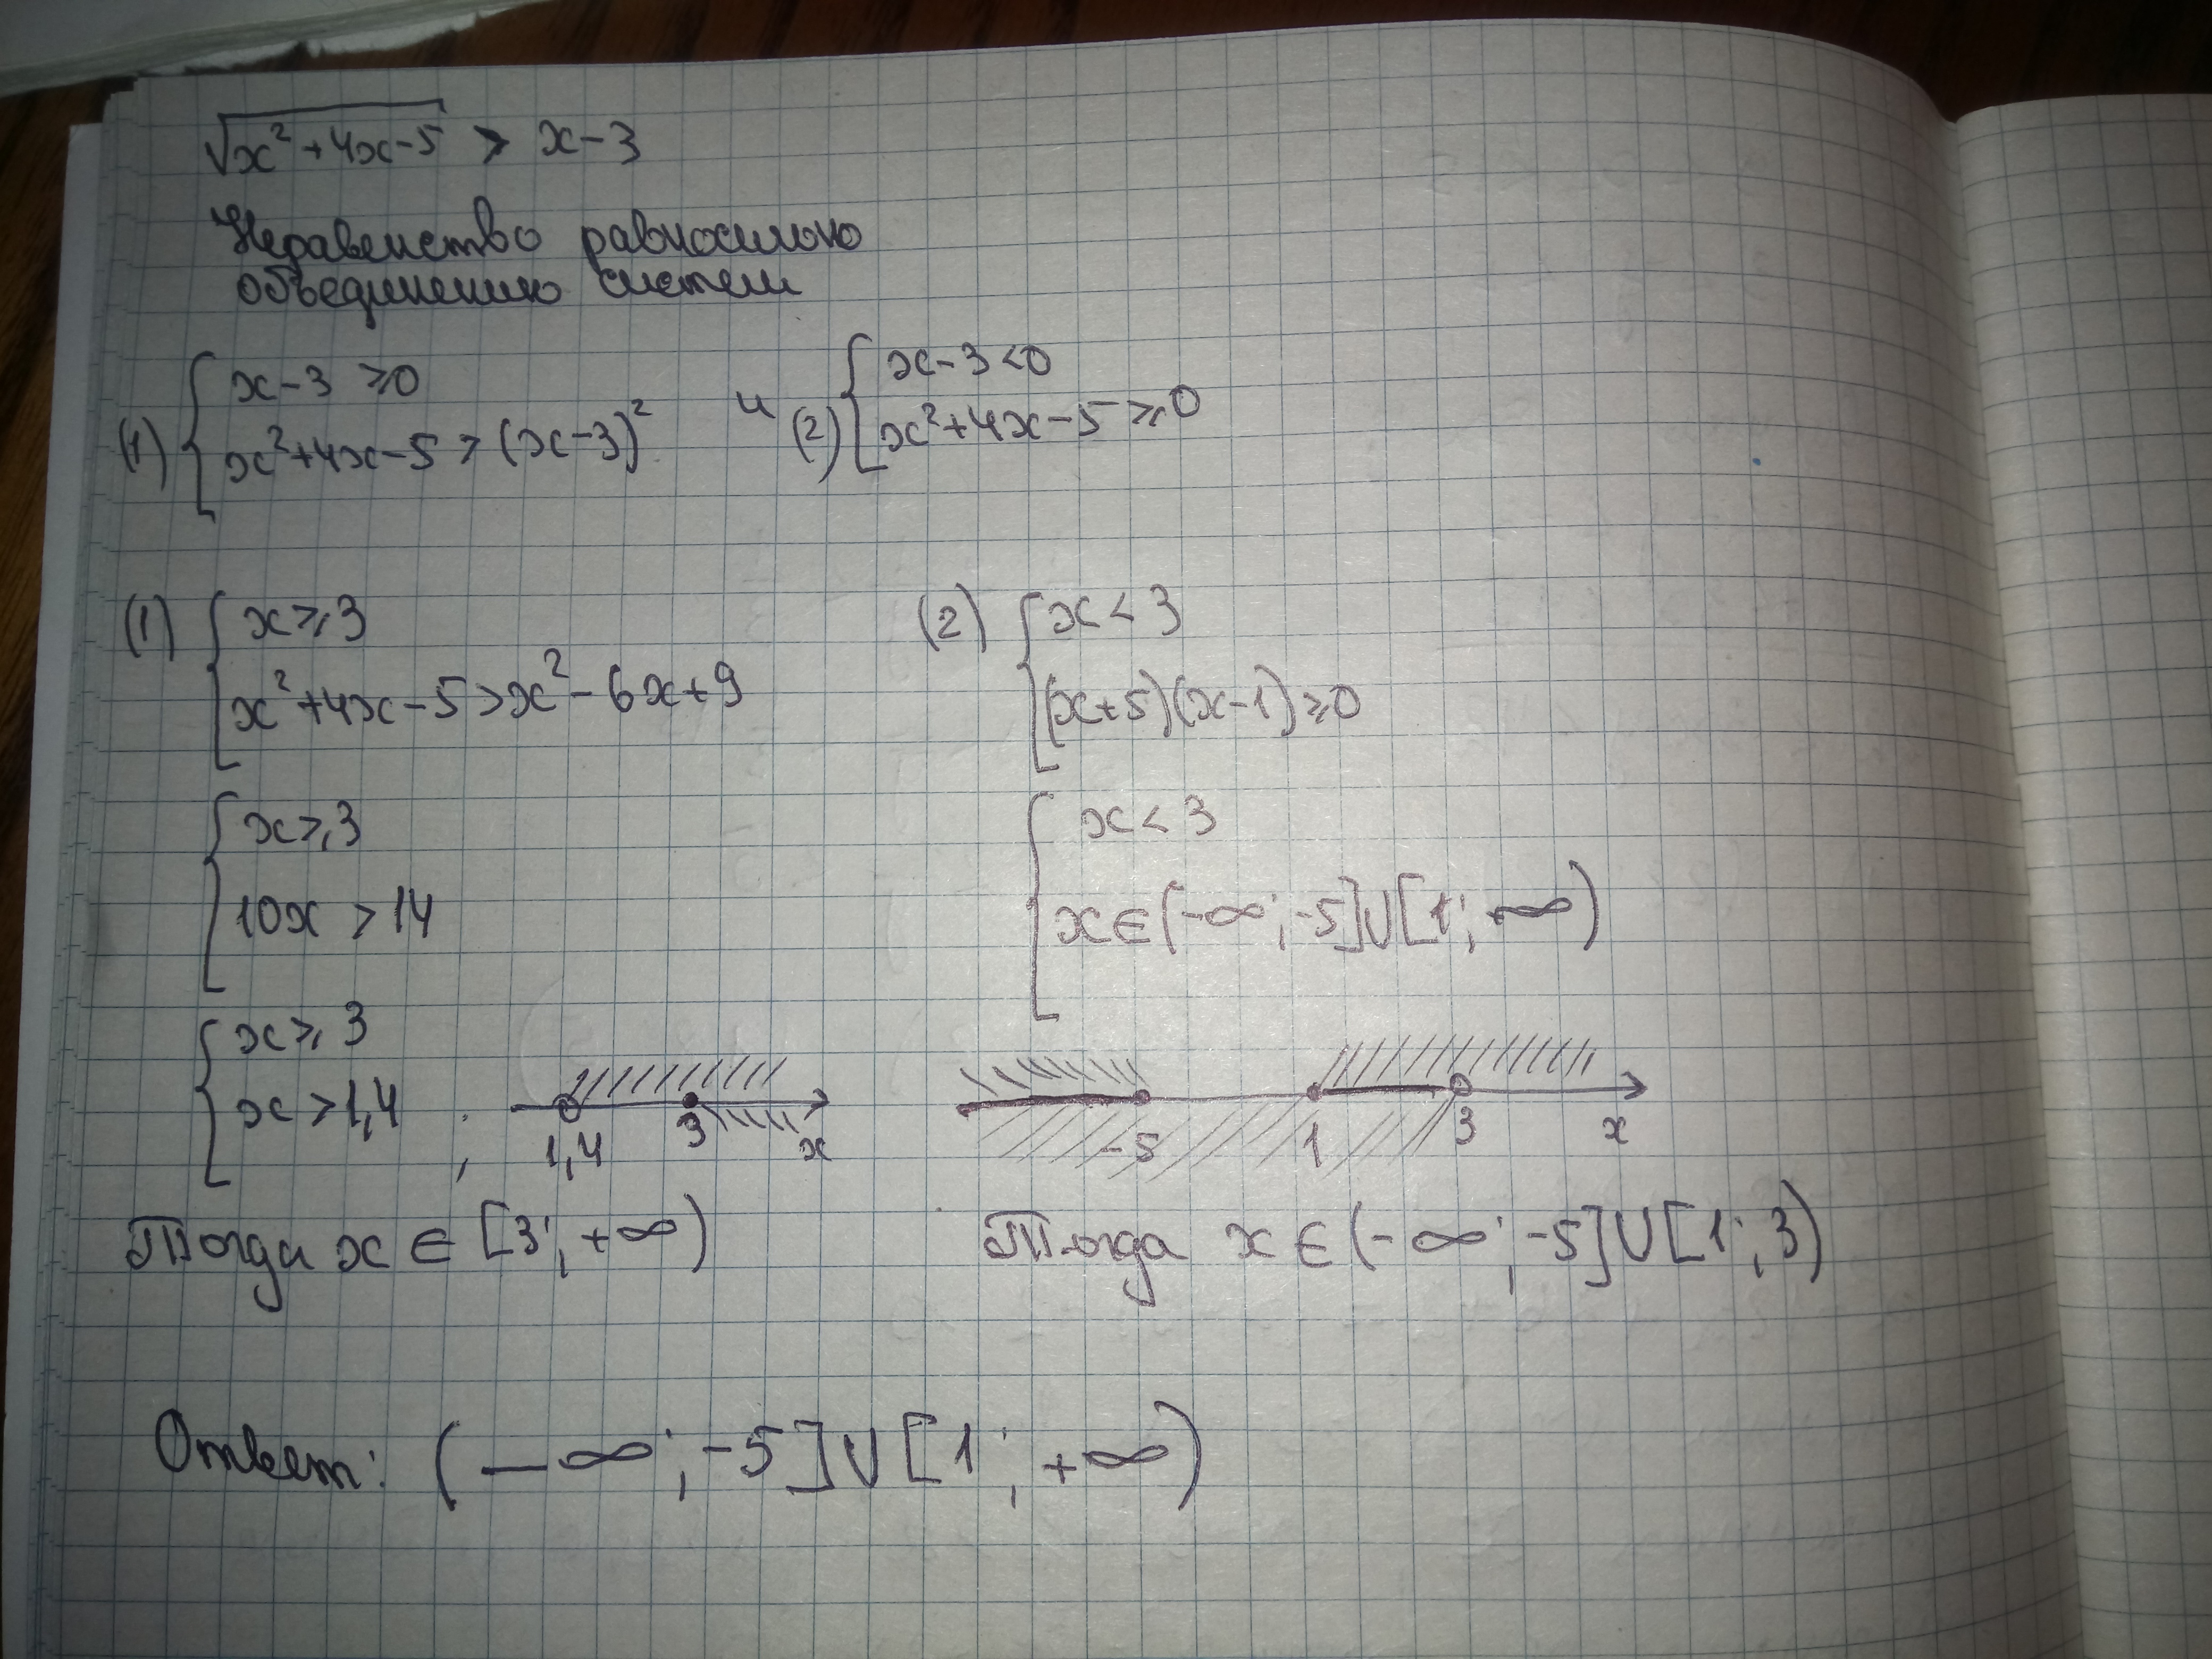 √(x²+4x-5) > x-3
Неравенство равносильно
объединению систем
(1) { x-3 ≥0
x²+4x-5 > (x-3)²
и (2) { x-3<0
x²+4x-5 ≥0
(1) { x≥3
x²+4x-5>x²-6x+9
{ x≥3
10x >14
{ x≥3
x>1,4 ;
1,4 3 x
Тогда x ∈ [3; +∞)
(2) { x<3
(x+5)(x-1)≥0
{ x<3
x∈(-∞; -5]∪[1; +∞)
-5 1 3 x
Тогда x∈(-∞; -5]∪[1; 3)
Ответ: (-∞; -5]∪[1; +∞)